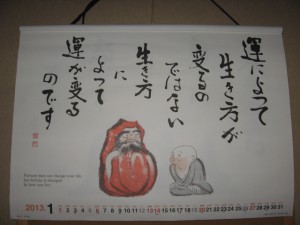 運によって
生き方が
変るの
ではない
生き方
に
よって
運が変る
のです
Fortune does not change your life,
2013. 1 1 2 3 4 5 6 7 8 9 10 11 12 13 14 15 16 17 18 19 20 21 22 23 24 25 26 27 28 29 30 31